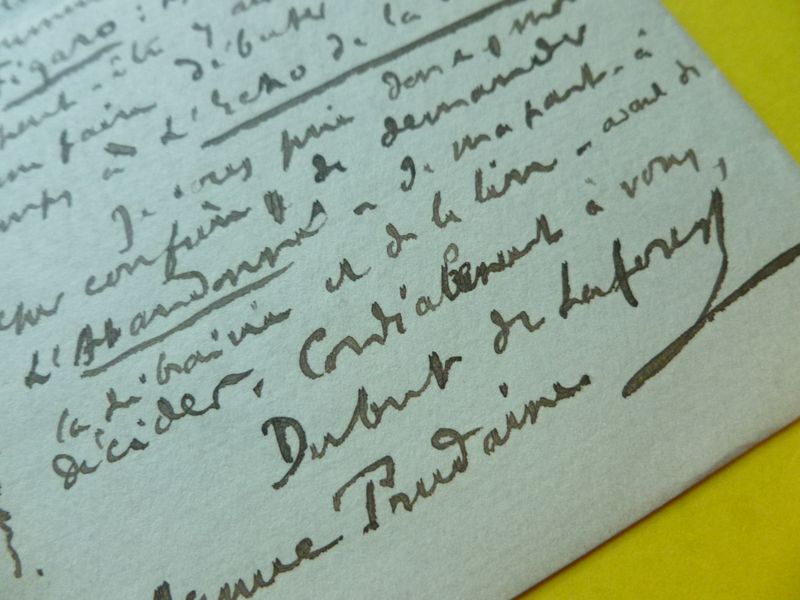 Figaro :
peut-être
faire débuter
à L'Echo de la
Je vous prie donc, mon
cher confrère de demander
L'Abandonné - de ma part - à
la librairie et de le lire - avant de
décider. Cordialement à vous,
Dubut de Laforest
Trudaine